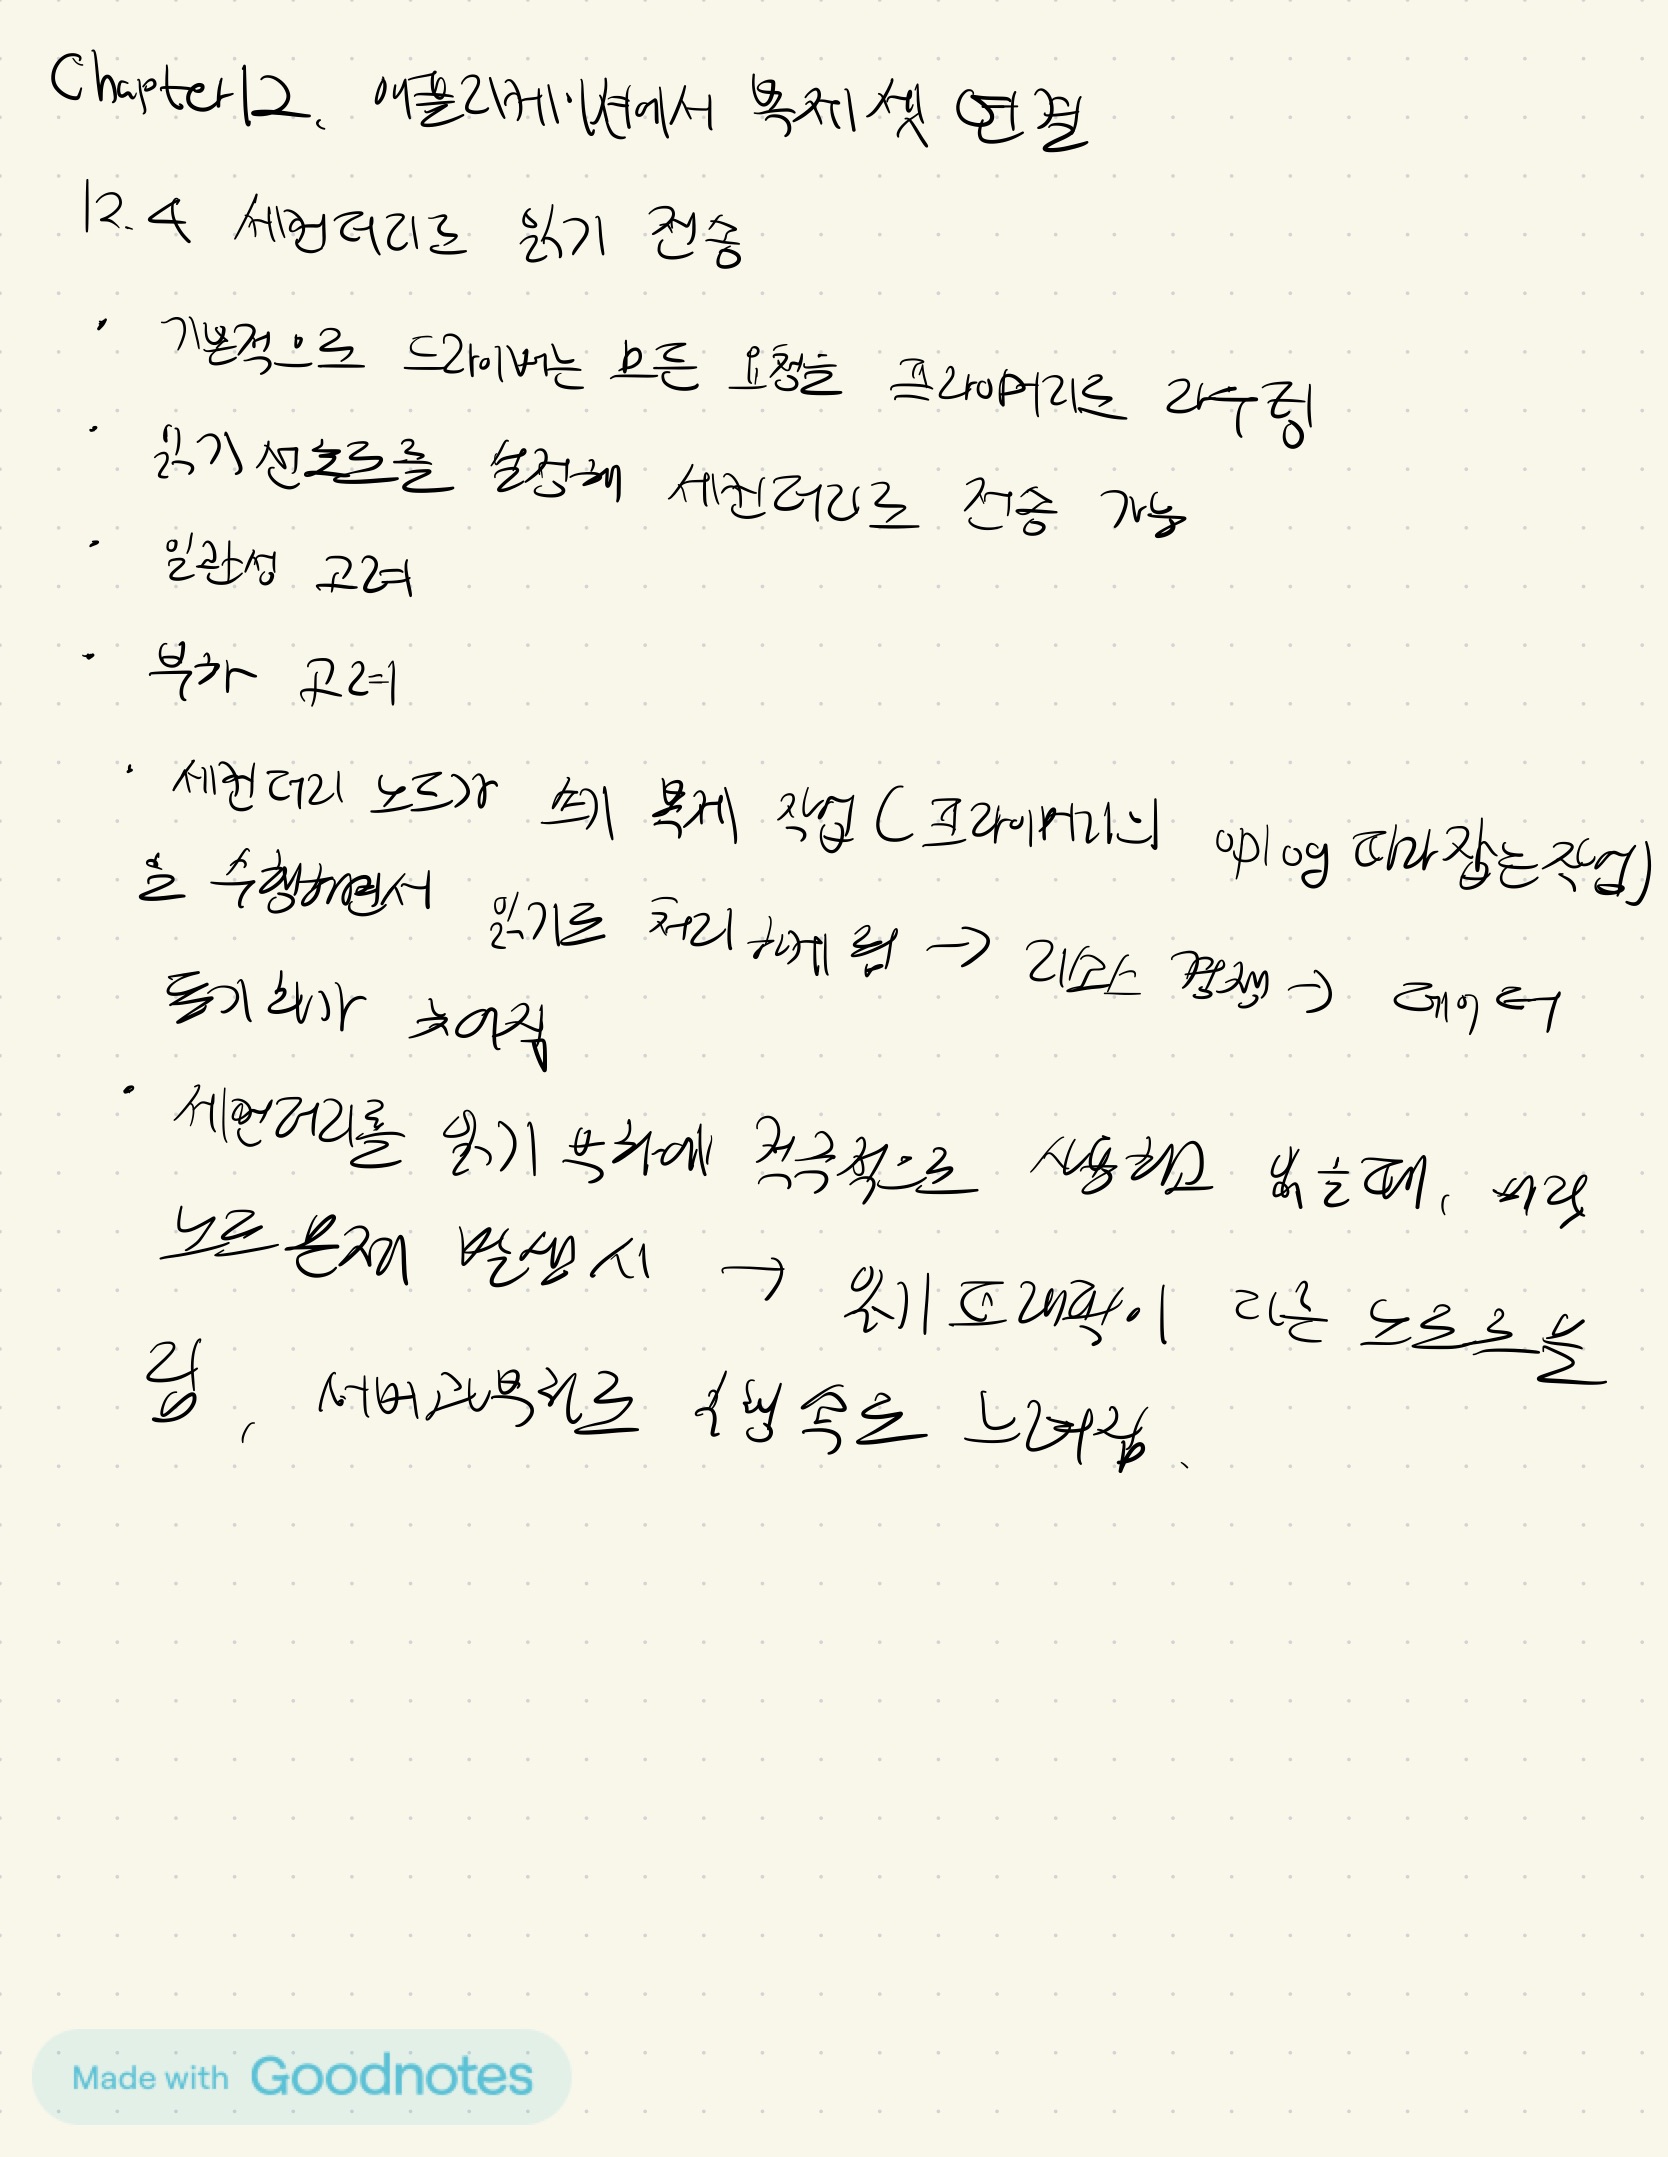 Chapter 12. 애플리케이션에서 복제 셋 연결
12.4 세컨더리로 읽기 전송
· 기본적으로 드라이버는 모든 요청을 프라이머리로 라우팅
· 읽기 선호도를 설정해 세컨더리로 전송 가능
· 일관성 고려
· 부하 고려
· 세컨더리 노드가 쓰기 복제 작업 (프라이머리의 oplog 따라잡는작업)
을 수행하면서 읽기로 처리하게 됨 → 리소스 경쟁 → 데이터
동기화가 늦어짐
· 세컨더리를 읽기 부하에 적극적으로 사용하고 있을때,
노드 문제 발생 시 → 읽기 트래픽이 다른 노드로 몰
림, 서버과부하로 수행 속도 느려짐.
Made with Goodnotes